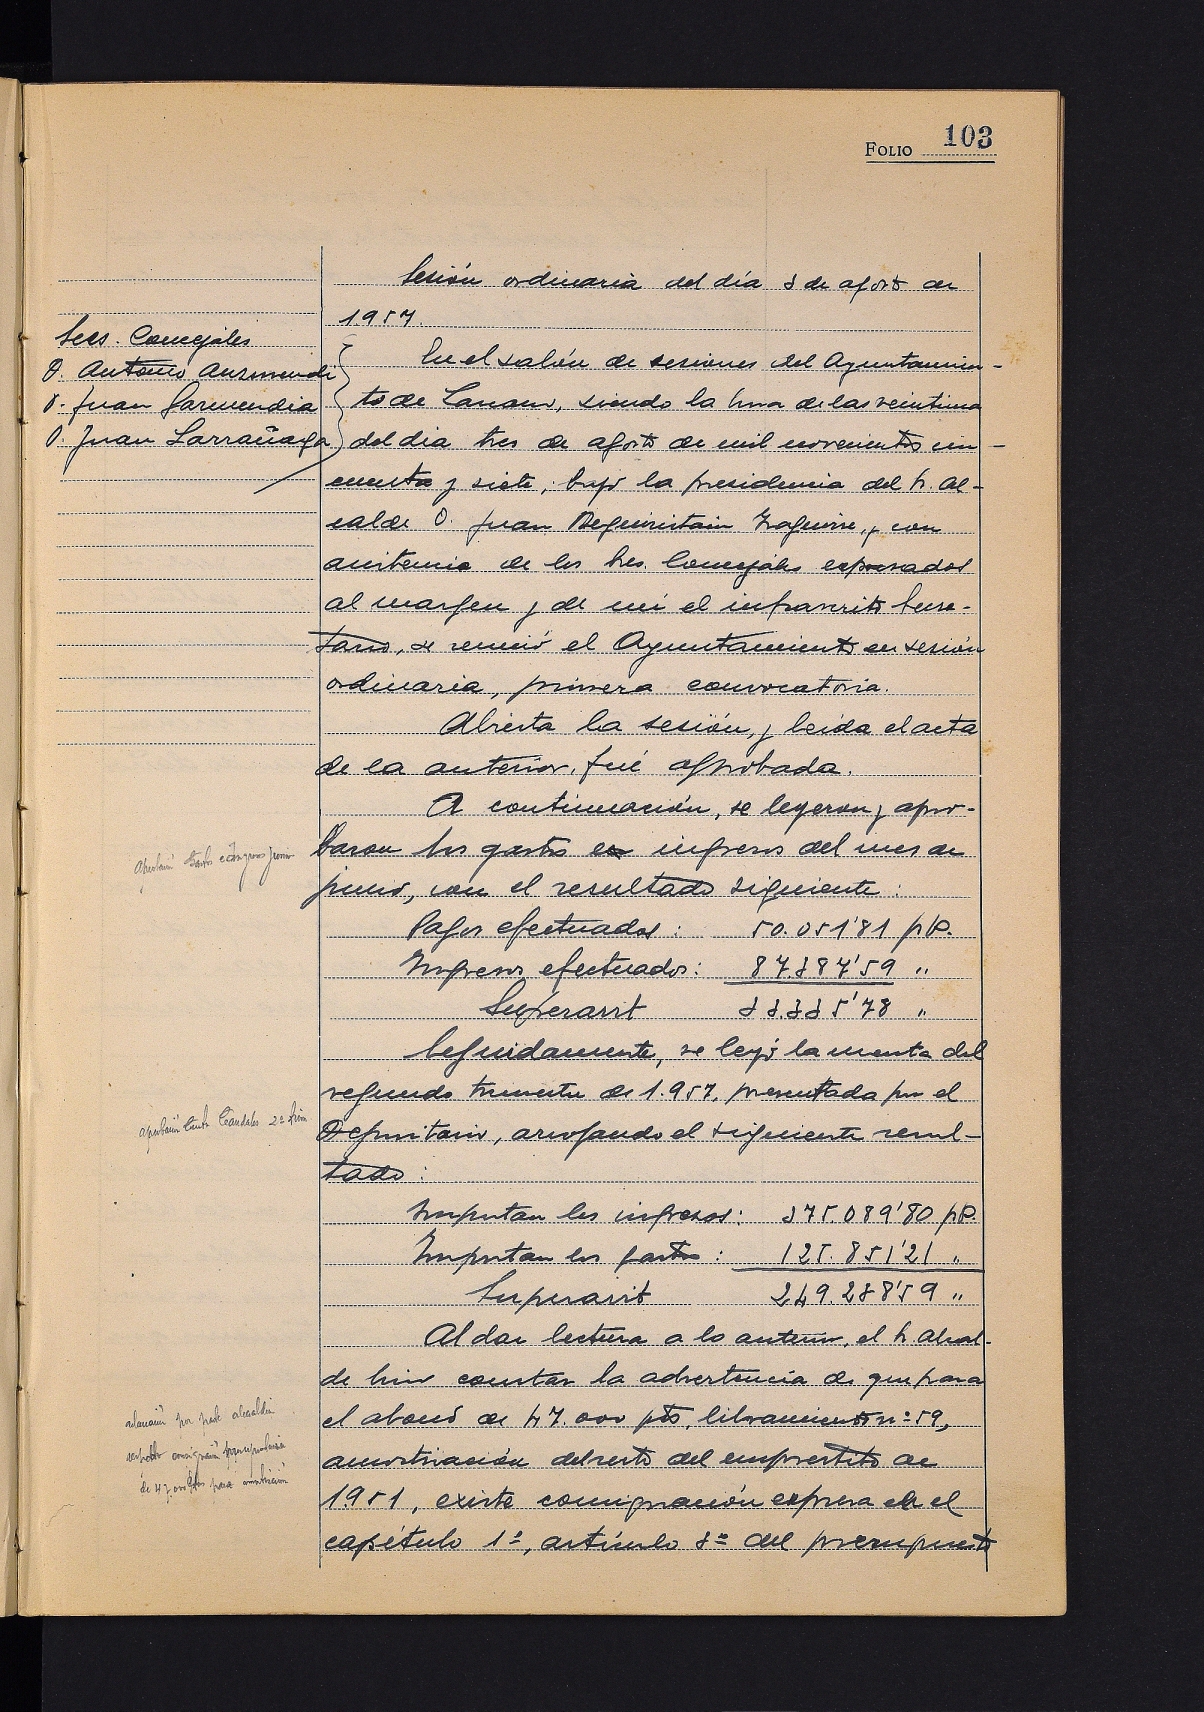 FOLIO 103
Sesión ordinaria del día 3 de agosto de
1.957.
Sres. Concejales
D. Antonio Auzmendi
D. Juan Garmendia
D. Juan Larrañaga
En el salón de sesiones del Ayuntamien-
to de Lazcano, siendo la hora de las veintiuna
del día tres de agosto de mil novecientos cin-
cuenta y siete; bajo la presidencia del Sr. Al-
calde D. Juan Beguiristain Izaguirre, y con
asistencia de los Sres. Concejales expresados
al margen y de mí el infrascrito Secre-
tario, se reunió el Ayuntamiento en sesión
ordinaria, primera convocatoria.
Abierta la sesión, y leída el acta
de la anterior, fué aprobada.
A continuación, se leyeron y apro-
baron los gastos e ingresos del mes de
junio, con el resultado siguiente:
Pagos efectuados: 50.051'81 pts.
Ingresos efectuados: 87.387'59 "
Súperavit 33.335'78 "
Seguidamente, se leyó la cuenta del
segundo trimestre de 1.957, presentada por el
Depositario, arrojando el siguiente resul-
tado:
Importan los ingresos: 375.089'80 pts.
Importan los gastos: 125.851'21 "
Superavit 249.238'59 "
Al dar lectura a lo anterior, el Sr. Alcal-
de hizo constar la advertencia de que para
el abono de 47.000 pts, libramiento nº 59,
amortización del resto del empréstito de
1.951, existe consignación expresa en el
capítulo 1º, artículo 3º del presupuesto
aprobación Gastos e ingresos junio
aprobación Cuenta Caudales 2º trim
aclaración por parte alcaldía
de 47.000 ptas para amortización